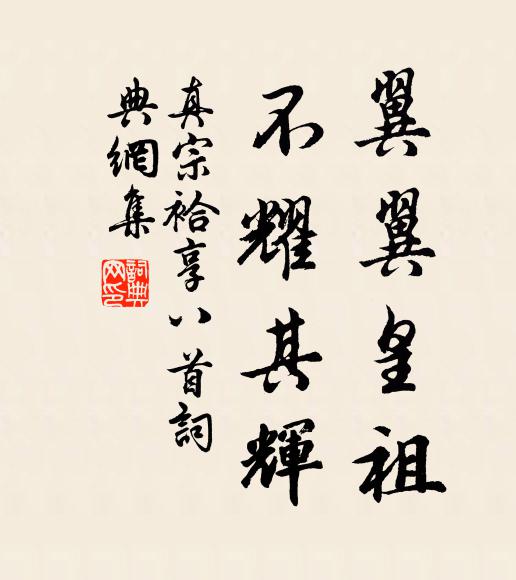 翼翼皇祖
不耀其輝
真宗祫享八首詞
典網集
詞典
网印